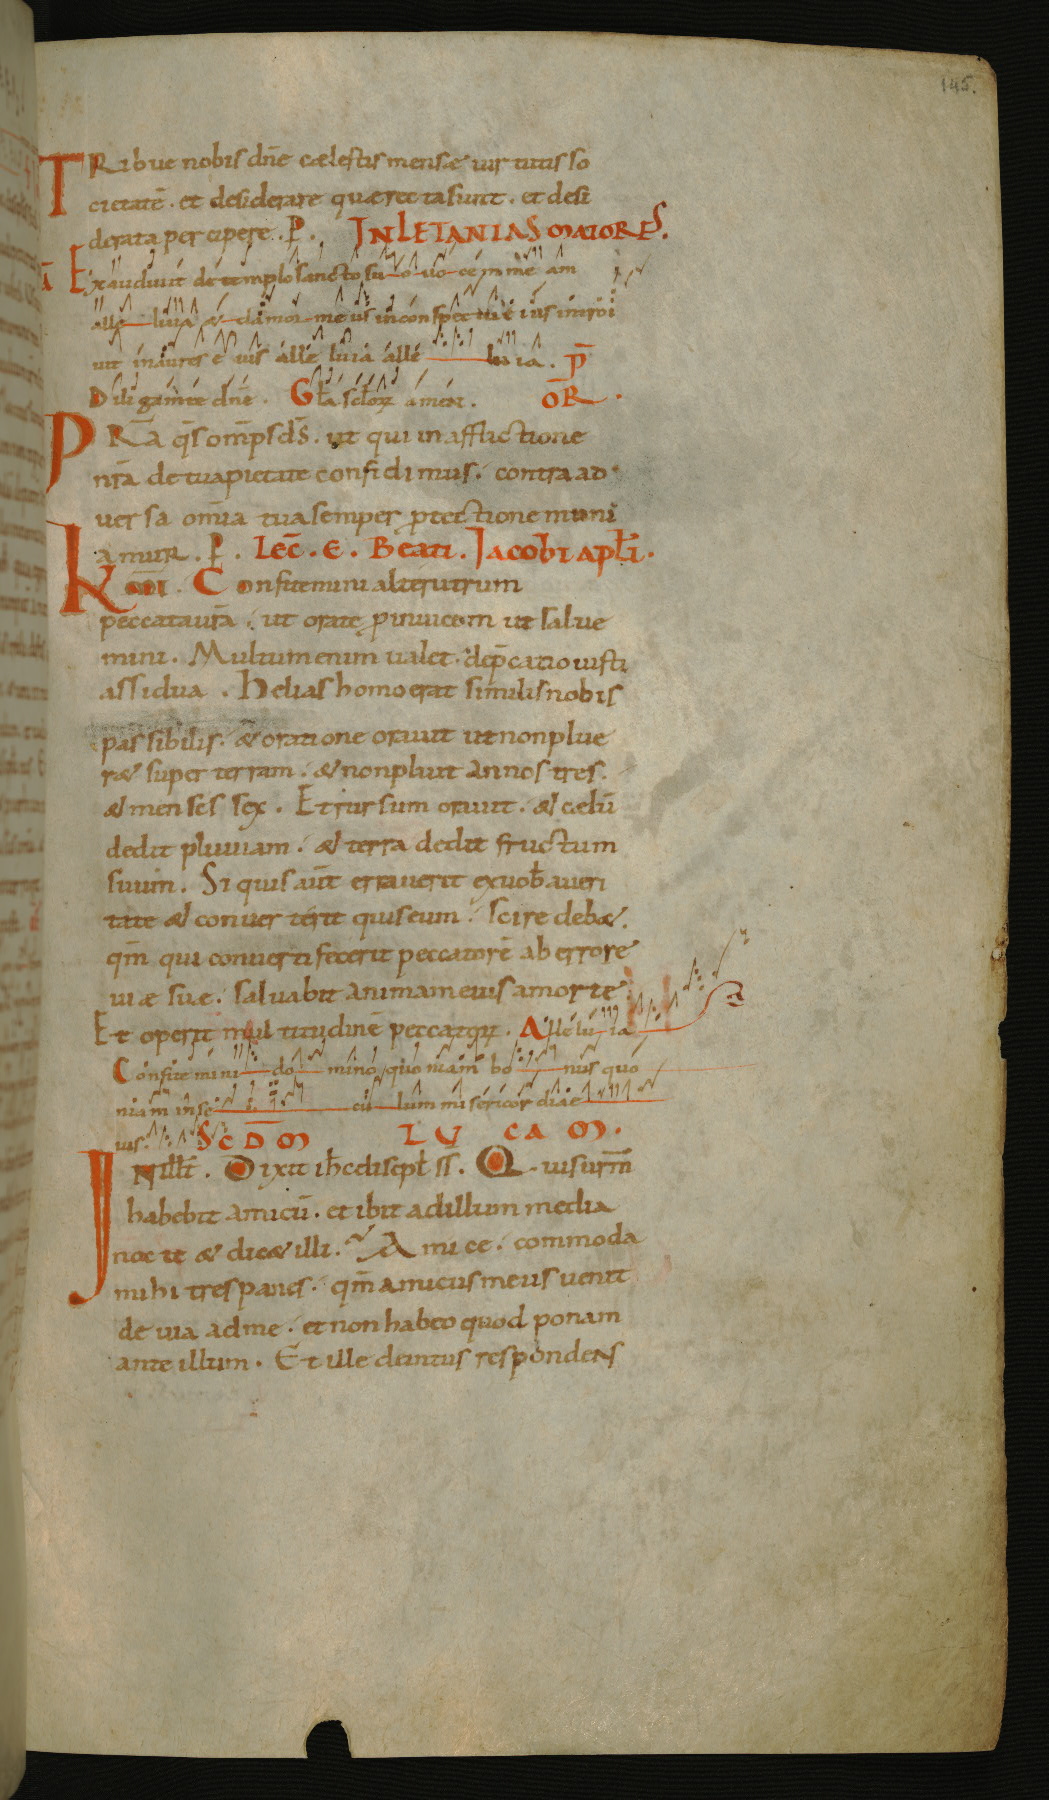 145.
TRibue nobis dn̄e cælestis mensæ uirtutis so
cietatē. et desiderare quæ recta sunt. et desi
derata percipere. P. IN LETANIAS MAIORES.
Ā Exaudiuit de templo sancto suo uocem meam
alleluia & clamor meus in conspectu eius introi
uit in aures eius alleluia alleluia. P̄
Diligam te dn̄e. Gła. scłoꝝ amen. OR̄.
PR̄A q̄s omp̄s d̄s. ut qui in afflictione
nr̄a de tua pietate confidimus. contra ad
uersa om̄ia tua semper ptectione muni
amur. P. Lec̄. E. Beati. Jacobi apłi.
K̄m̄i. Confitemini alterutrum
peccata ur̄a. ut orate p inuicem ut salue
mini. Multum enim ualet. dep̄catio iusti
assidua. Helias homo erat similis nobis
passibilis. & oratione orauit ut non plue
r& super terram. & non pluit annos tres.
& menses sex. Et rursum orauit. & cælū
dedit pluuiam. & terra dedit fructum
suum. Si quis aūt errauerit ex uob̄ a ueri
tate & conuerterit quis eum. scire deb&.
qm̄ qui conuerti fecerit peccatorē ab errore
uiæ suæ. saluabit animam eius a morte
Et operit multitudinē peccatoꝝ. Alleluia
Confitemini domino quoniam bonus quo
niam in seculum misericordiae
ius. SCD̄M LUCAM.
IN illt̄. Dixit ih̄c discipł ss. Quis ur̄m
habebit amicū. et ibit ad illum media
nocte & dic& illi. Amice. commoda
mihi tres panes. qm̄ amicus meus uenit
de uia ad me. et non habeo quod ponam
ante illum. Et ille deintus respondens